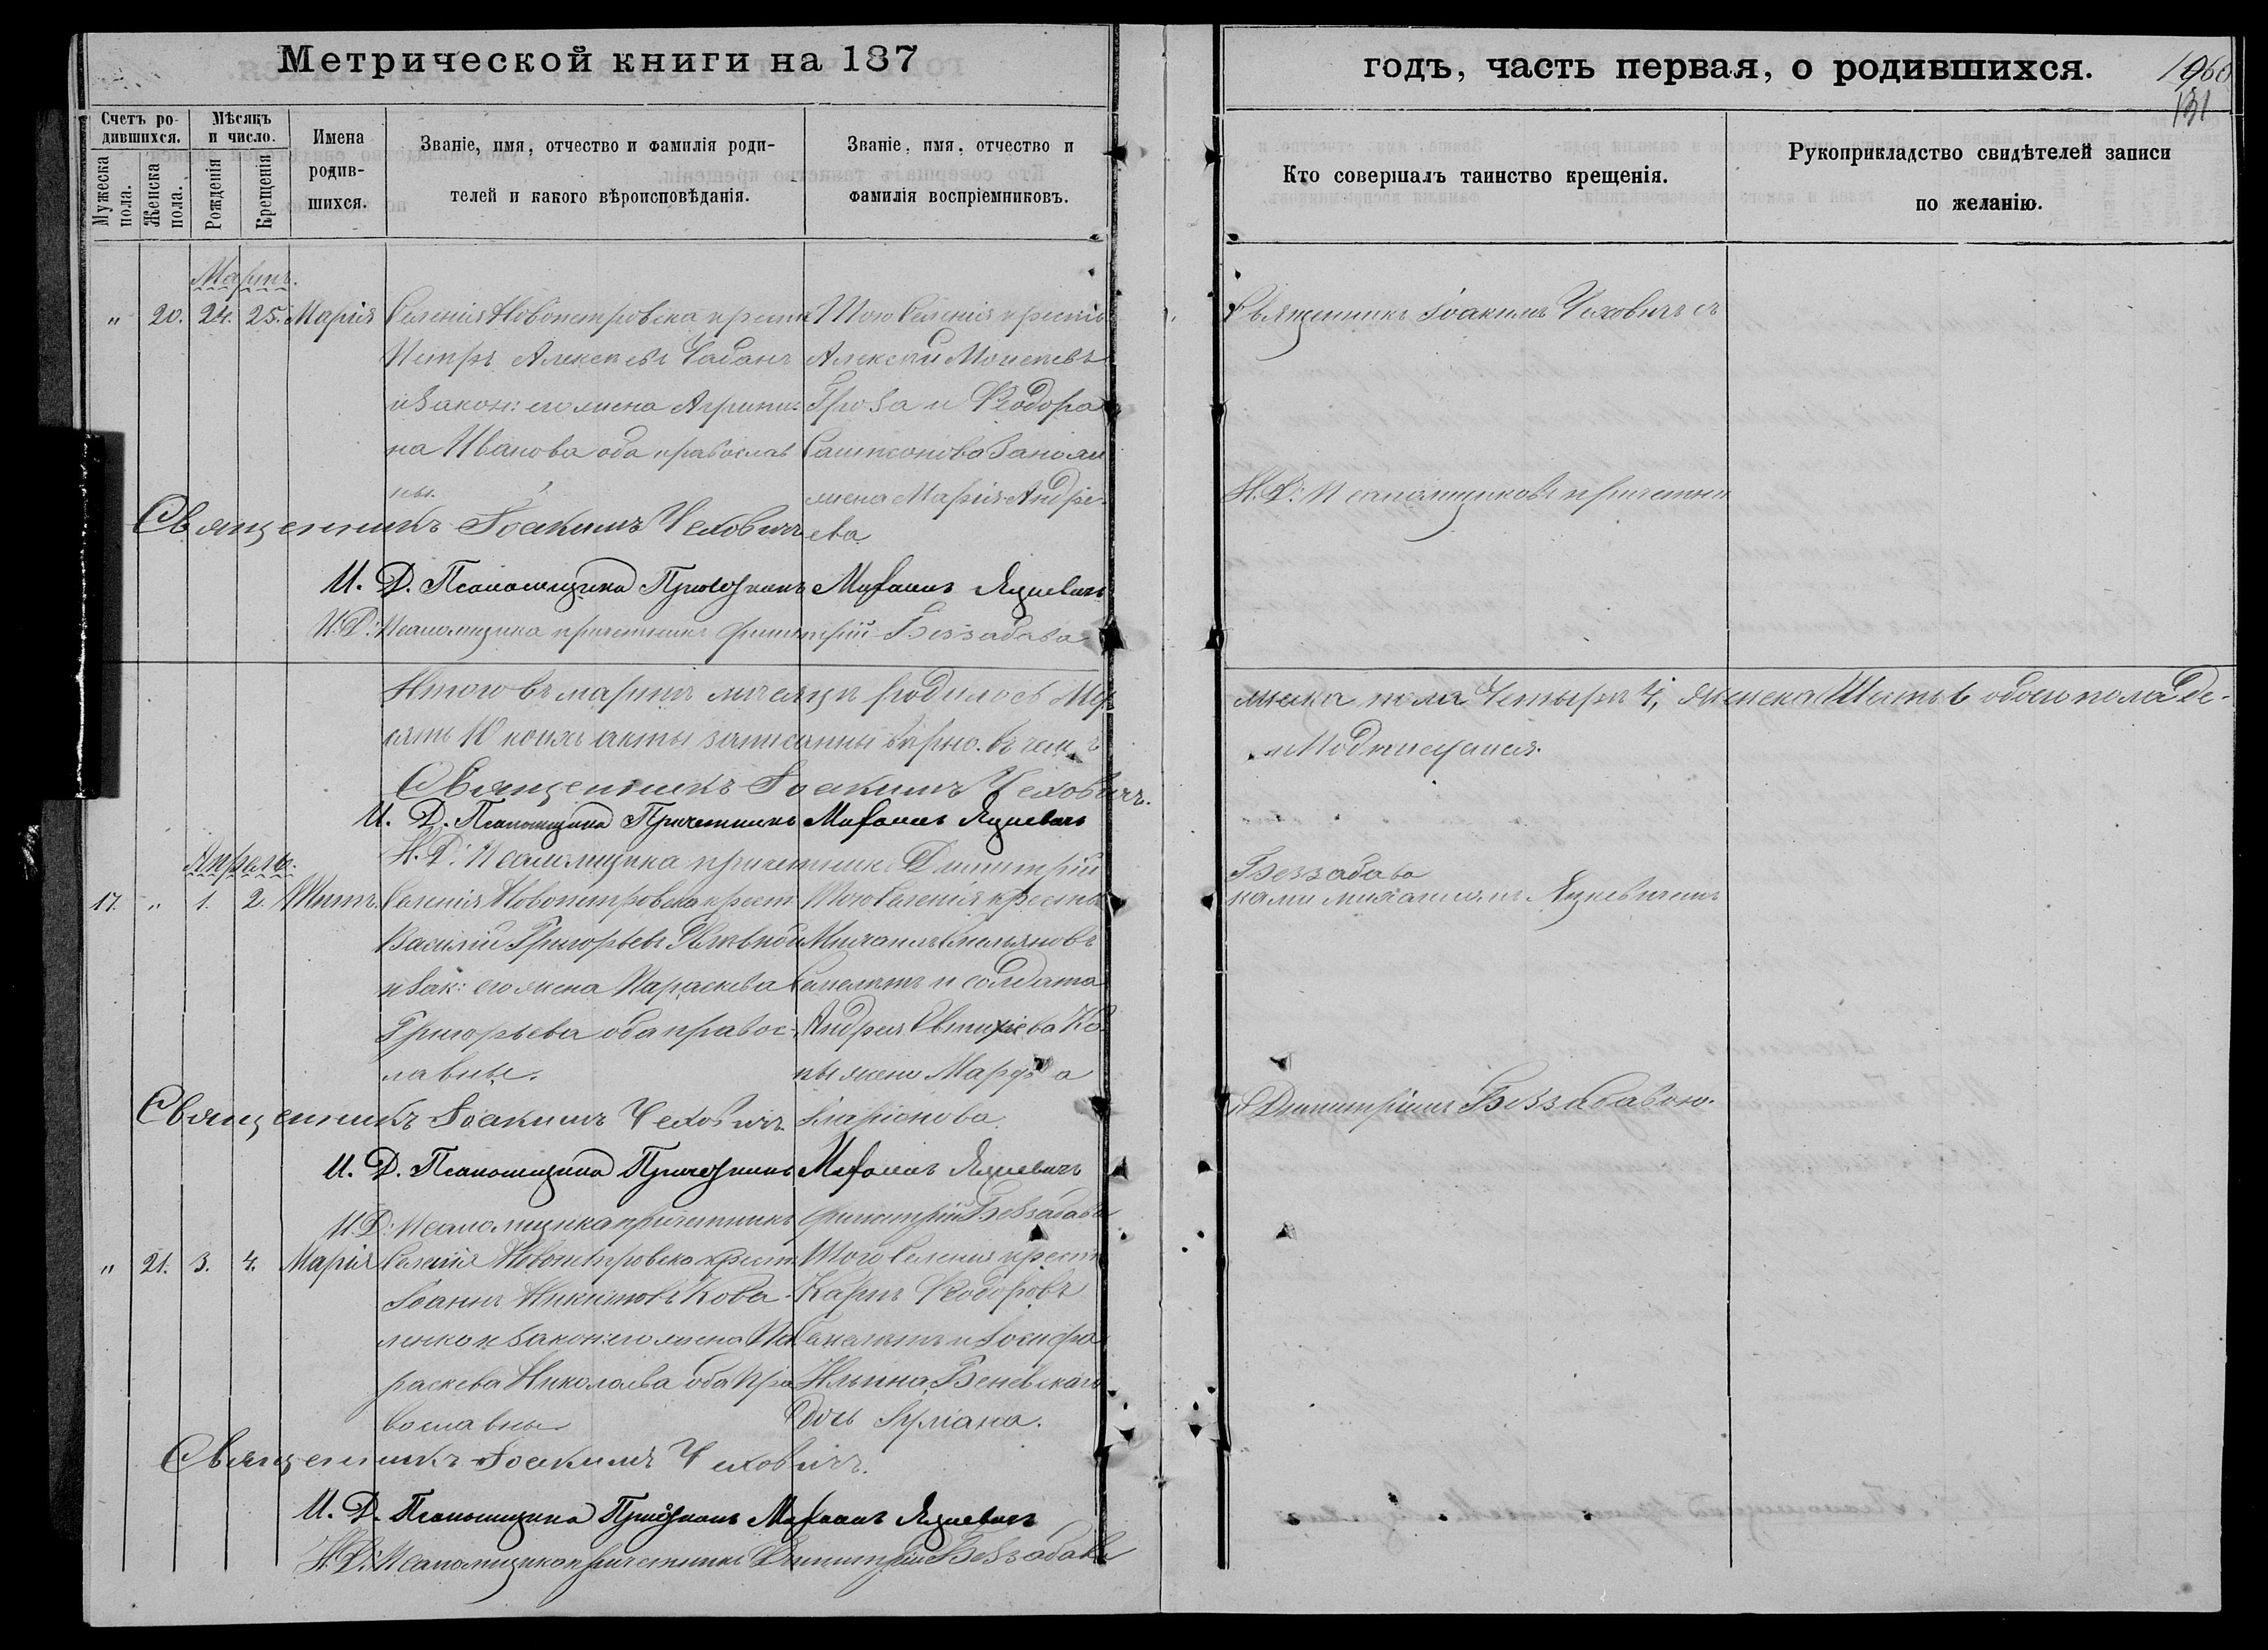 Метрической книги на 187
годъ, часть первая, о родившихся.
131
Счетъ ро-
дившихся.
Мужеска пола.
Женска пола.
Мѣсяцъ
и число.
Рожденія
Крещенія
Имена
родив-
шихся.
Званіе, имя, отчество и фамилія роди-
телей и какого вѣроисповѣданія.
Званіе, имя, отчество и
фамилія воспріемниковъ.
Кто совершалъ таинство крещенія.
Рукоприкладство свидѣтелей записи
по желанію.
Мартъ.
" 20. 24. 25. Марія
Селенія Новопетровска крест
Петръ Алексѣевъ Чабанъ
и закон: его жена Агрипи-
на Иванова оба православ
ны.
Того Селенія крест
Алексѣй Моисеевъ
Гроза и Ѳеодора
жена Марія Андре-
ева
Священникъ Іоакимъ Чеховичъ съ
И. Д. Псаломщиковъ причетни
Священникъ Іоакимъ Чеховичъ
И. Д. Псаломщика Причетникъ Михаилъ Яцкевичъ
И. Д. Псаломщика причетникъ Димитрій Беззабава
Итого въ мартѣ мѣсяцѣ родилось Му
жеска пола Четыре 4, женска Шесть 6 обоего пола Де-
сять 10 коихъ акты записанны вѣрно. въ чемъ
и Подписуемся.
Священникъ Іоакимъ Чеховичъ.
И. Д. Псаломщика Причетникъ Михаилъ Яцкевичъ
И. Д. Псаломщика причетникъ Димитрій
Беззабава
Апрель.
17. " 1. 2. Титъ.
Селенія Новопетровска крест
Василій Григорьевъ
и Зак: его жена Параскева
Григорьева оба правос-
лавны.
Того Селенія крест
Михаилъ Емельяновъ
и солдата
Андрея Евтихіева Ко
жена Марфа
Иларіонова.
ками Михаиломъ Яцкевичемъ
и Димитріемъ Беззабавою.
Священникъ Іоакимъ Чеховичъ.
И. Д. Псаломщика Причетникъ Михаилъ Яцкевичъ
И. Д. Псаломщика причетникъ Димитрій Беззабава
" 21. 3. 4. Марія
Селенія Новопетровска крест
Іоаннъ Никитовъ Кова-
ленко и Закон: его жена Па
раскева Николаева оба Пра
вославны
Того Селенія крест
Карпъ Ѳеодоровъ
и Іосифа
Ильина Беневскаго
дочь Іуліана.
Священникъ Іоакимъ Чеховичъ.
И. Д. Псаломщика Причетникъ Михаилъ Яцкевичъ
И. Д. Псаломщика причетникъ Димитрій Беззабава